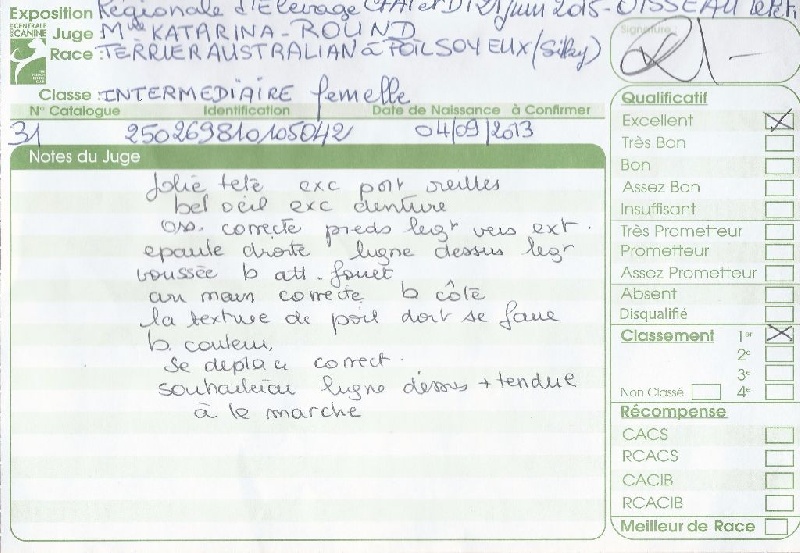 Exposition Régionale d'Elevage 21 juin 2015 - OISSEAU le petit
GENERALE CANINE
Juge Mme KATARINA - ROUND
Race : TERRIER AUSTRALIAN à POIL SOYEUX (Silky)
Signature
Classe : INTERMEDIAIRE femelle
N° Catalogue Identification Date de Naissance à Confirmer
31 250269810105042 04/09/2013
Notes du Juge
Jolie tete exc port oreilles
bel oeil exc denture
oss. correcte pieds legr vers ext.
epaule droite ligne dessus legr
voussée b att. fouet
av main correcte b côte
la texture de poil doit se faire
b couleur
se deplace correct.
souhaiterai ligne dessus + tendue
à la marche
Qualificatif
Excellent
Très Bon
Bon
Assez Bon
Insuffisant
Très Prometteur
Prometteur
Assez Prometteur
Absent
Disqualifié
Classement 1er
2e
3e
Non Classé 4e
Récompense
CACS
RCACS
CACIB
RCACIB
Meilleur de Race